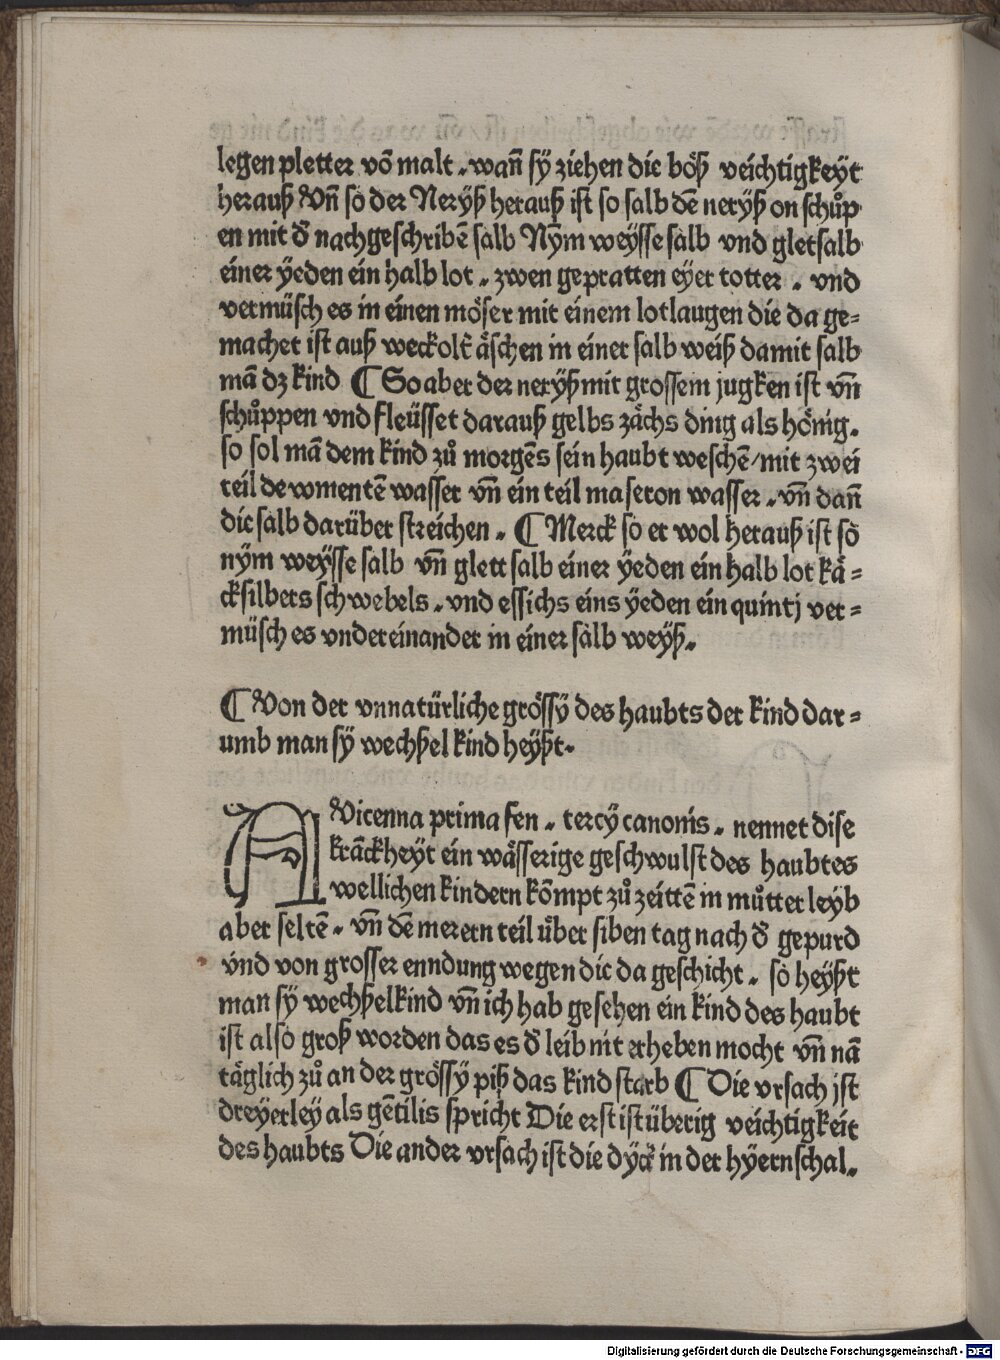 legen pletter võ malt . wañ sÿ ziehen die böß veichtigkeÿt
herauß Vñ so der Nerÿß herauß ist so salb dẽ nerÿß on schůp
en mit đ nachgeschribẽ salb Nÿm weÿsse salb vnd gletsalb
einer ÿeden ein halb lot . zwen gepratten eÿer totter . vnd
vermüsch es in einen möser mit einem lotlaugen die da ge=
machet ist auß weckolt̃ äschen in einer salb weiß damit salb
mã dz kind ¶ So aber der nerÿß mit grossem jugken ist vñ
schůppen vnd fleüsset darauß gelbs zächs ding als hönig .
so sol mã dem kind zů morgẽs sein haubt weschẽ / mit zwei
teil de wmentẽ wasser vñ ein teil maseron wasser . vñ dañ
die salb darüber streichen . ¶ Merck so er wol herauß ist so
nÿm weÿsse salb vñ glett salb einer ÿeden ein halb lot kä=
cksilbers schwebels . vnd essichs eins ÿeden ein quintj ver=
müsch es vndereinander in einer salb weÿß .
¶ Von der vnnatürliche grössÿ des haubts der kind dar=
umb man sÿ wechßel kind heÿßt .
AVicenna prima fen . tercÿ canonis . nennet dise
krãckheÿt ein wässerige geschwulst des haubtes
wellichen kindern kõmpt zů zeittẽ in můtter leÿb
aber seltẽ . vñ dẽ merern teil über siben tag nach đ gepurd
vnd von grosser enndung wegen die da geschicht . so heÿßt
man sÿ wechßelkind vñ ich hab gesehen ein kind des haubt
ist also groß worden das es đ leib nit erheben mocht vñ nã
täglich zů an der grössÿ piß das kind starb ¶ Die vrsach jst
dreÿerleÿ als gẽtilis spricht Die erst ist überig veichtigkeit
des haubts Die ander vrsach ist die dÿck in der hÿernschal .
Digitalisierung gefördert durch die Deutsche Forschungsgemeinschaft - DFG